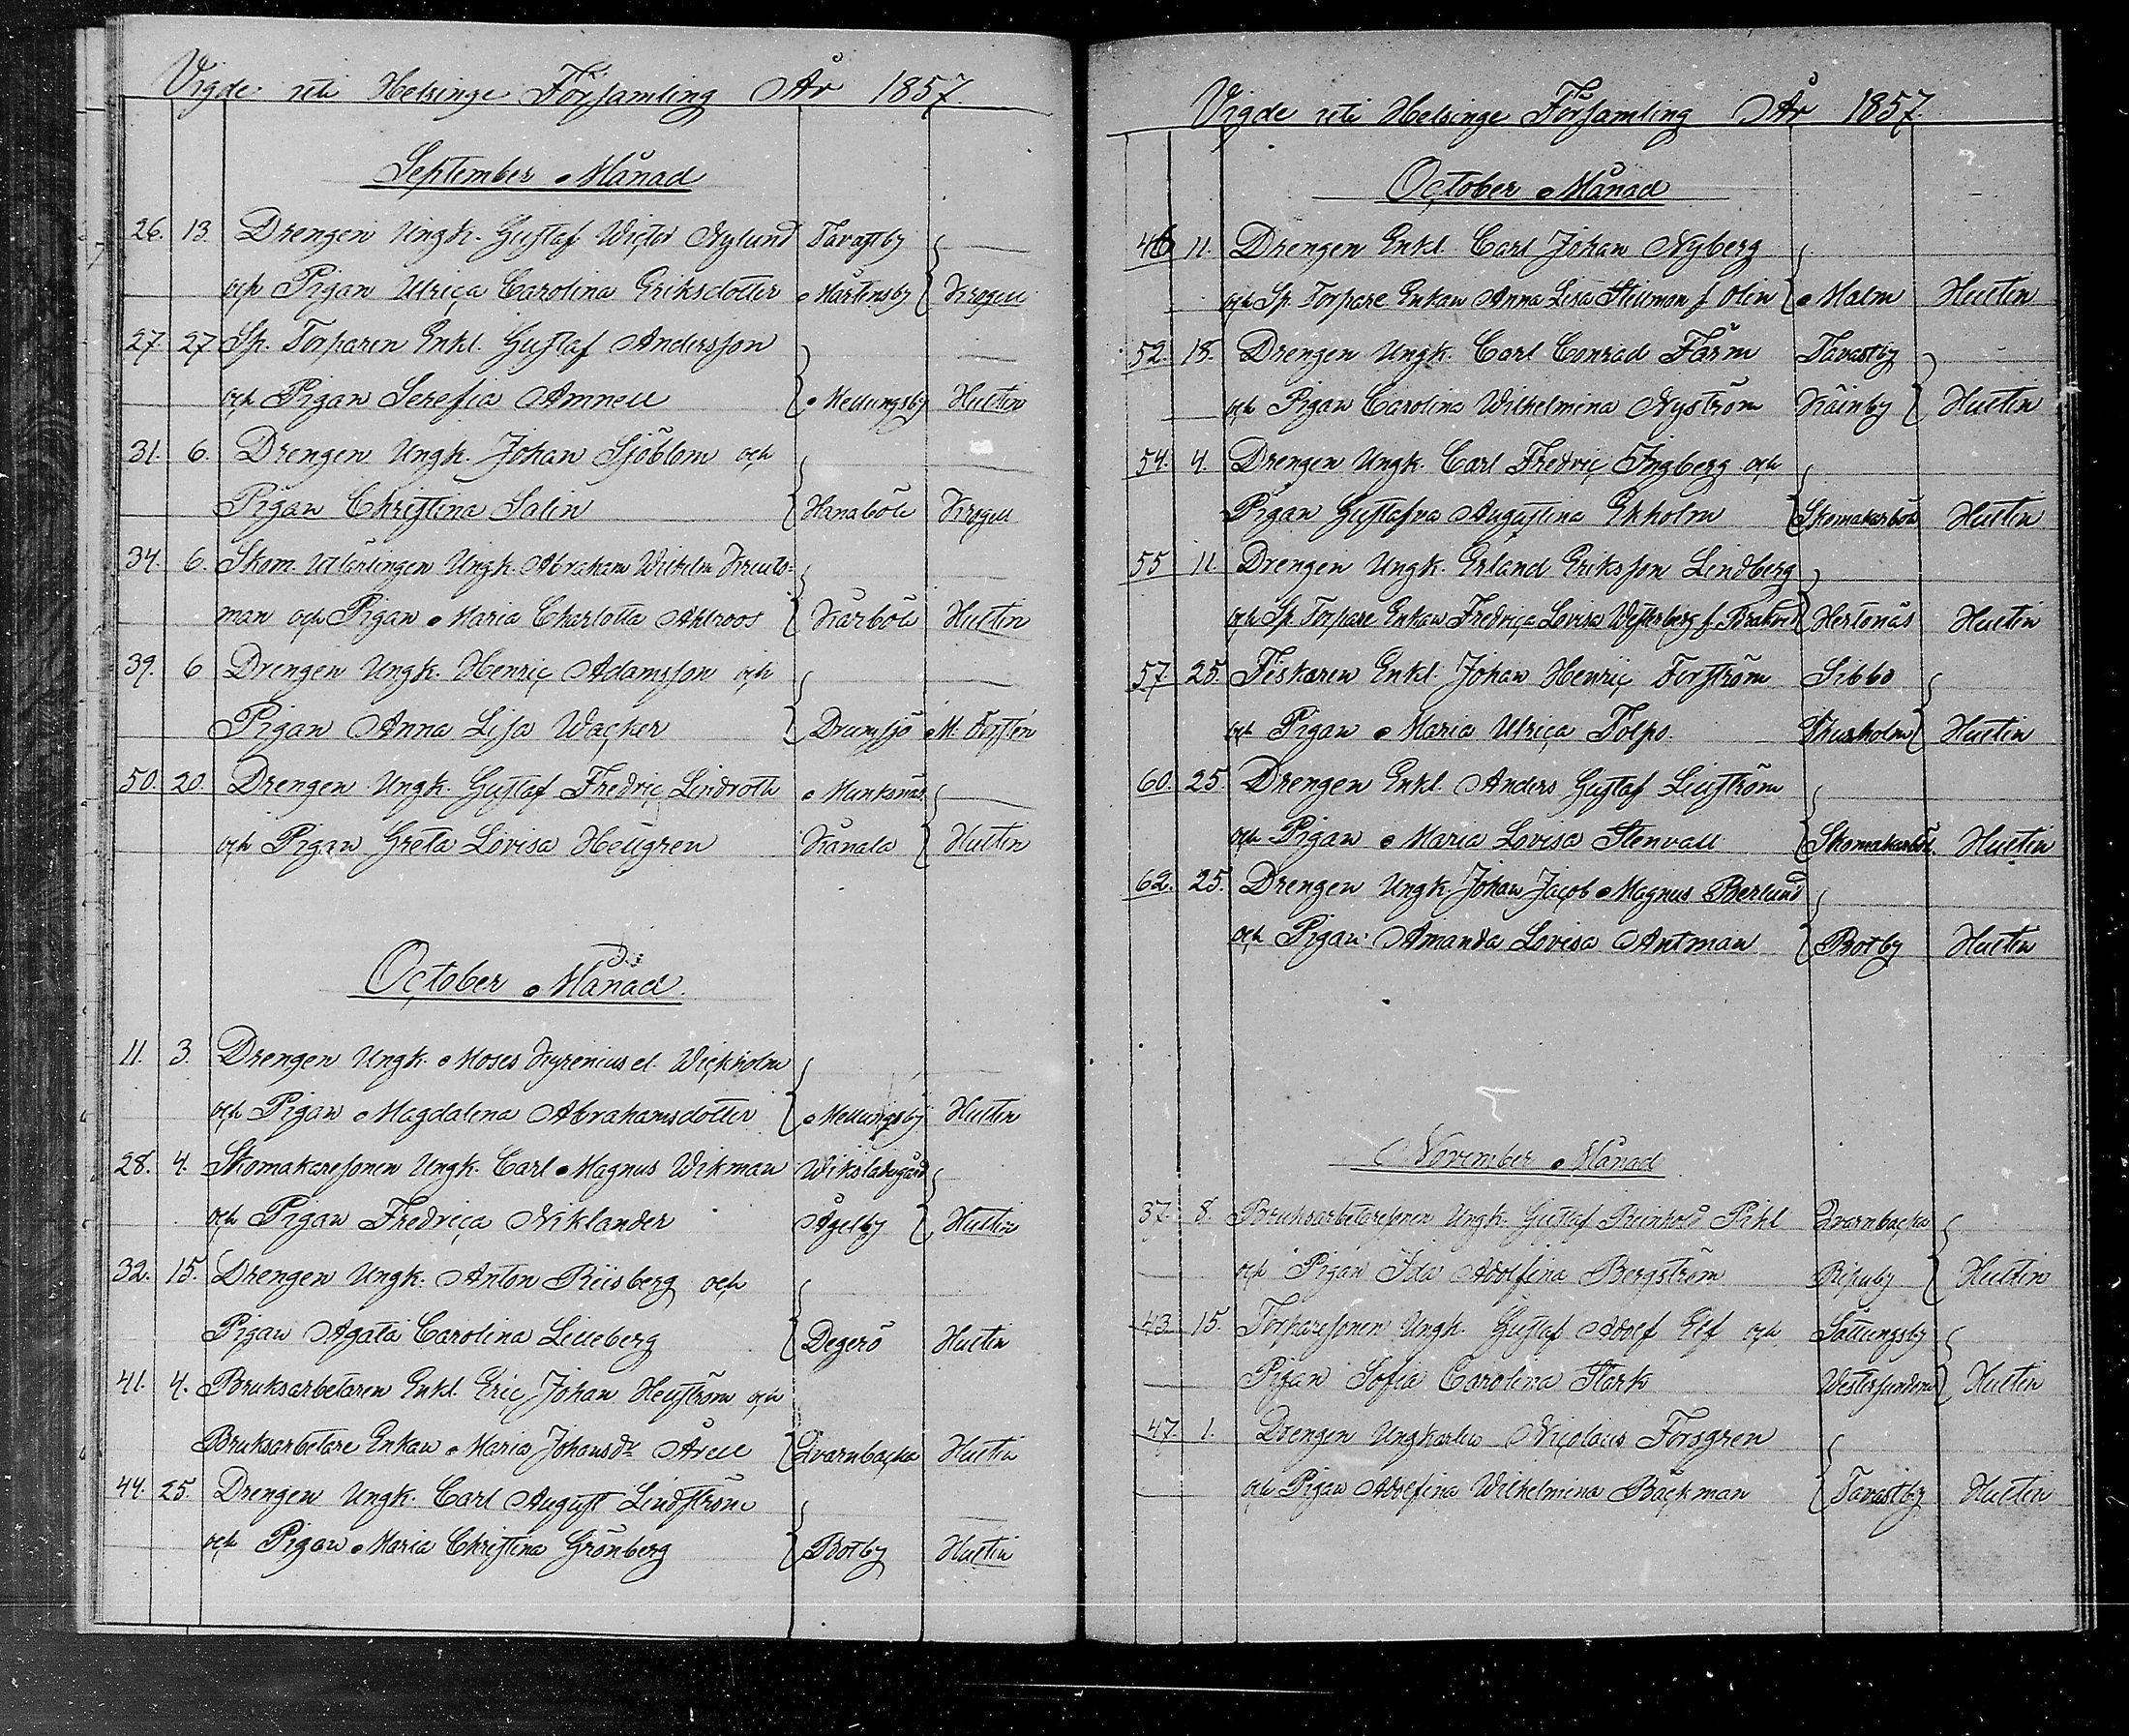 Vigde uti Helsinge Församling År 1857.
September Månad
26. 13. Drengen Ungk. Gustaf Wictor Nylund Tavastby
och Pigan Ulrica Carolina Eriksdotter Mårtensby Krogell
27. 27. Sp. Torparen Enkl. Gustaf Andersson
och Pigan Serefia Amnell Mellungsby Hultin
31. 6. Drengen Ungk. Johan Sjöblom och
Pigan Christina Salin Hanaböle Krogell
34. 6. Skom. Utlärlingen Ungk. Abraham Wilhelm Kruto-
man och Pigan Maria Charlotta Ahlroos Kårböle Hultin
39. 6 Drengen Ungk. Henric Adamsson och
Pigan Anna Lisa Wacker Drumsjö M. Forstén
50. 20. Drengen Ungk. Gustaf Fredric Lindroth Munksnäs
och Pigan Greta Lovisa Hellgren Kånala Hultin
October Månad.
11. 3. Drengen Ungk. Moses Kyrenius el. Wickholm
och Pigan Magdalena Abrahamsdotter Mellungsby Hultin
28. 4. Skomakaresonen Ungk. Carl Magnus Wikman Wiksladugård
och Pigan Fredrica Niklander Ågelby Hultin
32. 15. Drengen Ungk. Anton Riisberg och
Pigan Agata Carolina Lilleberg Degerö Hultin
41. 4. Bruksarbetaren Enkl. Eric Johan Hellström och
Bruksarbetare Enkan Maria Johansdr Årell Qvarnbacka Hultin
44. 25. Drengen Ungk. Carl August Lindström
och Pigan Maria Christina Grönberg Botby Hultin
Vigde uti Helsinge Församling År 1857.
October Månad
46 11. Drengen Enkl. Carl Johan Nyberg
och Sp. Torpare Enkan Anna Lisa Stillman f. Olin Malm Hultin
52. 18. Drengen Ungk. Carl Conrad Färm Tavastby
och Pigan Carolina Wilhelmina Nyström Käinby Hultin
54. 4. Drengen Ungk. Carl Fredric Ingberg och
Pigan Gustafva Augustina Ekholm Skomakarböle Hultin
55 11. Drengen Ungk. Erland Eriksson Lindberg
och Sp. Torpare Enkan Fredrica Lovisa Westerberg f. Hertonäs Hultin
57. 25. Fiskaren Enkl. Johan Henric Forström Sibbo
och Pigan Maria Ulrica Tolpo Hultin
60. 25. Drengen Enkl. Anders Gustaf Liljström
och Pigan Maria Lovisa Stenvall Skomakarböle. Hultin
62. 25. Drengen Ungk. Johan Jacob Magnus Berlund
och Pigan Amanda Lovisa Antman Botby Hultin
November Månad
37. 8. Bruksarbetaresonen Ungk. Gustaf Reinhold Pihl Qvarnbacka
och Pigan Ida Adolfina Bergström Ripuby Hultin
43. 15. Torparesonen Ungk. Gustaf Adolf Elf och Sottungsby
Pigan Sofia Carolina Stark Westersundom Hultin
47. 1. Drengen Ungkarlen Nicolaus Forsgren
och Pigan Adolfina Wilhelmina Bäckman Tavastby Hultin